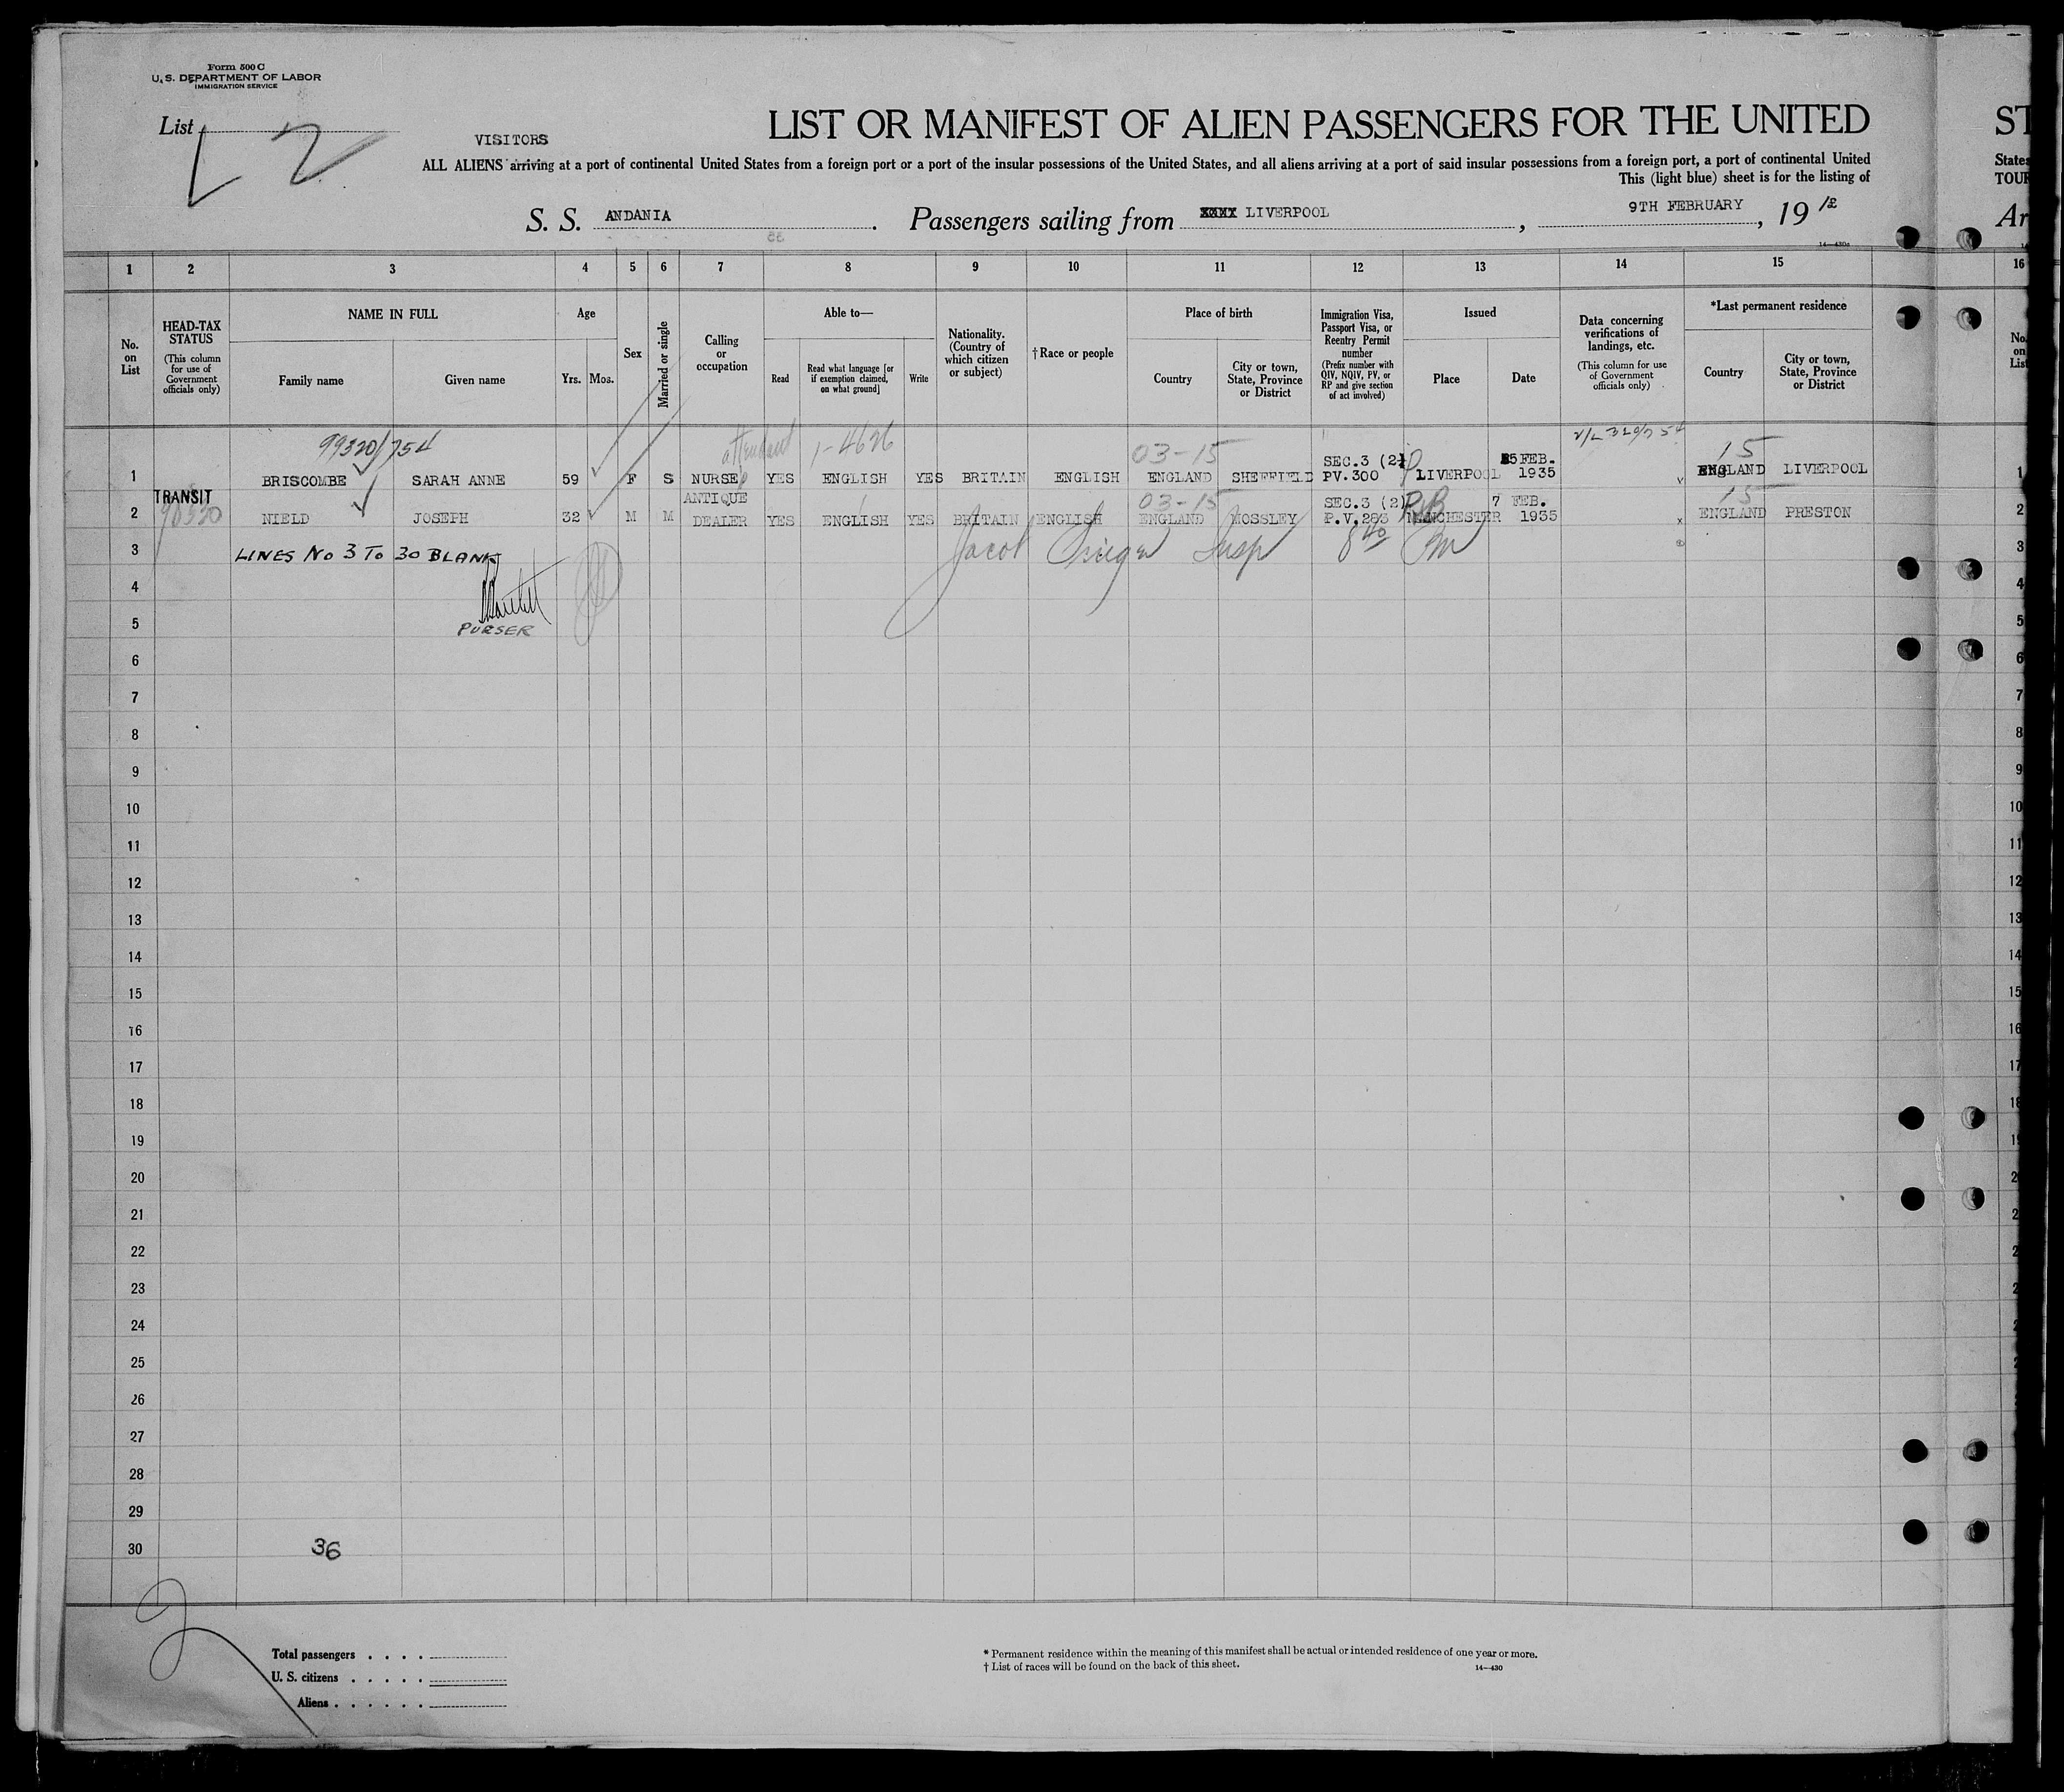 Form 500 C
U. S. DEPARTMENT OF LABOR
IMMIGRATION SERVICE
List
2
LIST OR MANIFEST OF ALIEN PASSENGERS FOR THE UNITED
ST
VISITORS
ALL ALIENS arriving at a port of continental United States from a foreign port or a port of the insular possessions of the United States, and all aliens arriving at a port of said insular possessions from a foreign port, a port of continental United
States
This (light blue) sheet is for the listing of
TOUR
S. S. ANDANIA. Passengers sailing from XXXX LIVERPOOL, 9TH FEBRUARY, 19
Ar
1 2 3 4 5 6 7 8 9 10 11 12 13 14 15 16
No. on List
HEAD-TAX STATUS
(This column for use of Government officials only)
NAME IN FULL
Family name
Given name
Age
Yrs. Mos.
Sex
Married or single
Calling or occupation
Able to—
Read
Read what language [or if exemption claimed, on what ground]
Write
Nationality. (Country of which citizen or subject)
†Race or people
Place of birth
Country
City or town, State, Province or District
Immigration Visa, Passport Visa, or Reentry Permit number
(Prefix number with QIV, NQIV, PV, or RP and give section of act involved)
Issued
Place
Date
Data concerning verifications of landings, etc.
(This column for use of Government officials only)
*Last permanent residence
Country
City or town, State, Province or District
No. on List
99320/754
attendant
1-4626
03-15
15
SEC.3 (2)
5 FEB.
1 BRISCOMBE SARAH ANNE 59 F S NURSE YES ENGLISH YES BRITAIN ENGLISH ENGLAND SHEFFIELD PV.300 LIVERPOOL 1935 ENGLAND LIVERPOOL 1
TRANSIT
ANTIQUE
03-15
SEC.3 (2)
7 FEB.
15
2 NIELD JOSEPH 32 M M DEALER YES ENGLISH YES BRITAIN ENGLISH ENGLAND MOSSLEY P.V.283 MANCHESTER 1935 ENGLAND PRESTON 2
3 LINES No 3 To 30 BLANK 3
Jacob Insp
4 4
5 PURSER 5
6 6
7 7
8 8
9 9
10 10
11 11
12 12
13 13
14 14
15 15
16 16
17 17
18 18
19
20
21
22
23
24
25
26
27
28
29
30
36
Total passengers
U. S. citizens
Aliens
* Permanent residence within the meaning of this manifest shall be actual or intended residence of one year or more.
† List of races will be found on the back of this sheet.
14—430